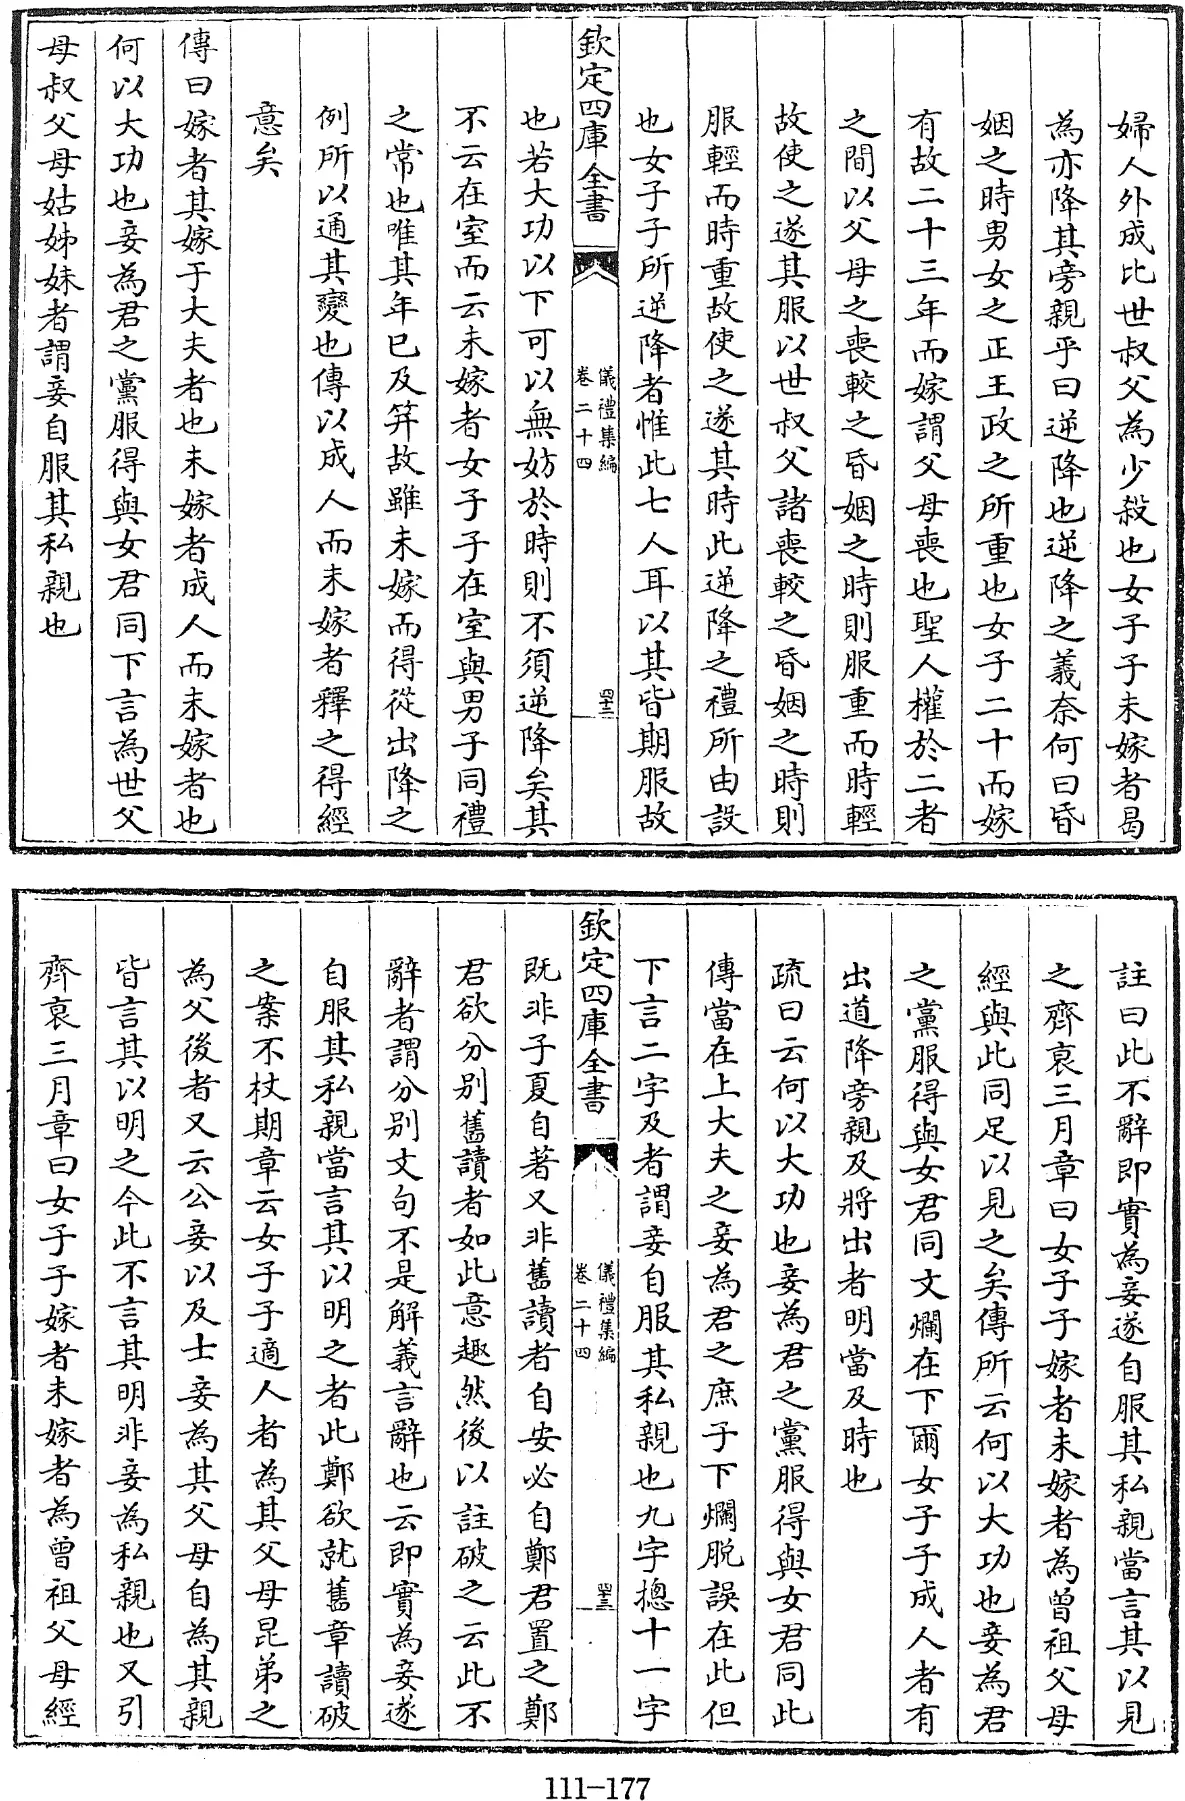 婦人外成比世叔父為少殺也女子子未嫁者曷
為亦降其旁親乎曰逆降也逆降之義奈何曰昏
姻之時男女之正王政之所重也女子二十而嫁
有故二十三年而嫁謂父母喪也聖人權於二者
之間以父母之喪較之昏姻之時則服重而時輕
故使之遂其服以世叔父諸喪較之昏姻之時則
服輕而時重故使之遂其時此逆降之禮所由設
也女子子所逆降者惟此七人耳以其皆期服故
欽定四庫全書
儀禮集編
卷二十四
四十三
也若大功以下可以無妨於時則不須逆降矣其
不云在室而云未嫁者女子子在室與男子同禮
之常也唯其年已及笄故雖未嫁而得從出降之
例所以通其變也傳以成人而未嫁者釋之得經
意矣
傳曰嫁者其嫁于大夫者也未嫁者成人而未嫁者也
何以大功也妾為君之黨服得與女君同下言為世父
母叔父母姑姊妹者謂妾自服其私親也
註曰此不辭即實為妾遂自服其私親當言其以見
之齊衰三月章曰女子子嫁者未嫁者為曾祖父母
經與此同足以見之矣傳所云何以大功也妾為君
之黨服得與女君同文爛在下爾女子子成人者有
出道降旁親及將出者明當及時也
疏曰云何以大功也妾為君之黨服得與女君同此
傳當在上大夫之妾為君之庶子下爛脫誤在此但
下言二字及者謂妾自服其私親也九字摠十一字
欽定四庫全書
儀禮集編
卷二十四
既非子夏自著又非舊讀者自安必自鄭君置之鄭
君欲分別舊讀者如此意趣然後以註破之云此不
辭者謂分別文句不是解義言辭也云即實為妾遂
自服其私親當言其以明之者此鄭欲就舊章讀破
之案不杖期章云女子子適人者為其父母昆弟之
為父後者又云公妾以及士妾為其父母自為其親
皆言其以明之今此不言其明非妾為私親也又引
齊衰三月章曰女子子嫁者未嫁者為曾祖父母經
111-177